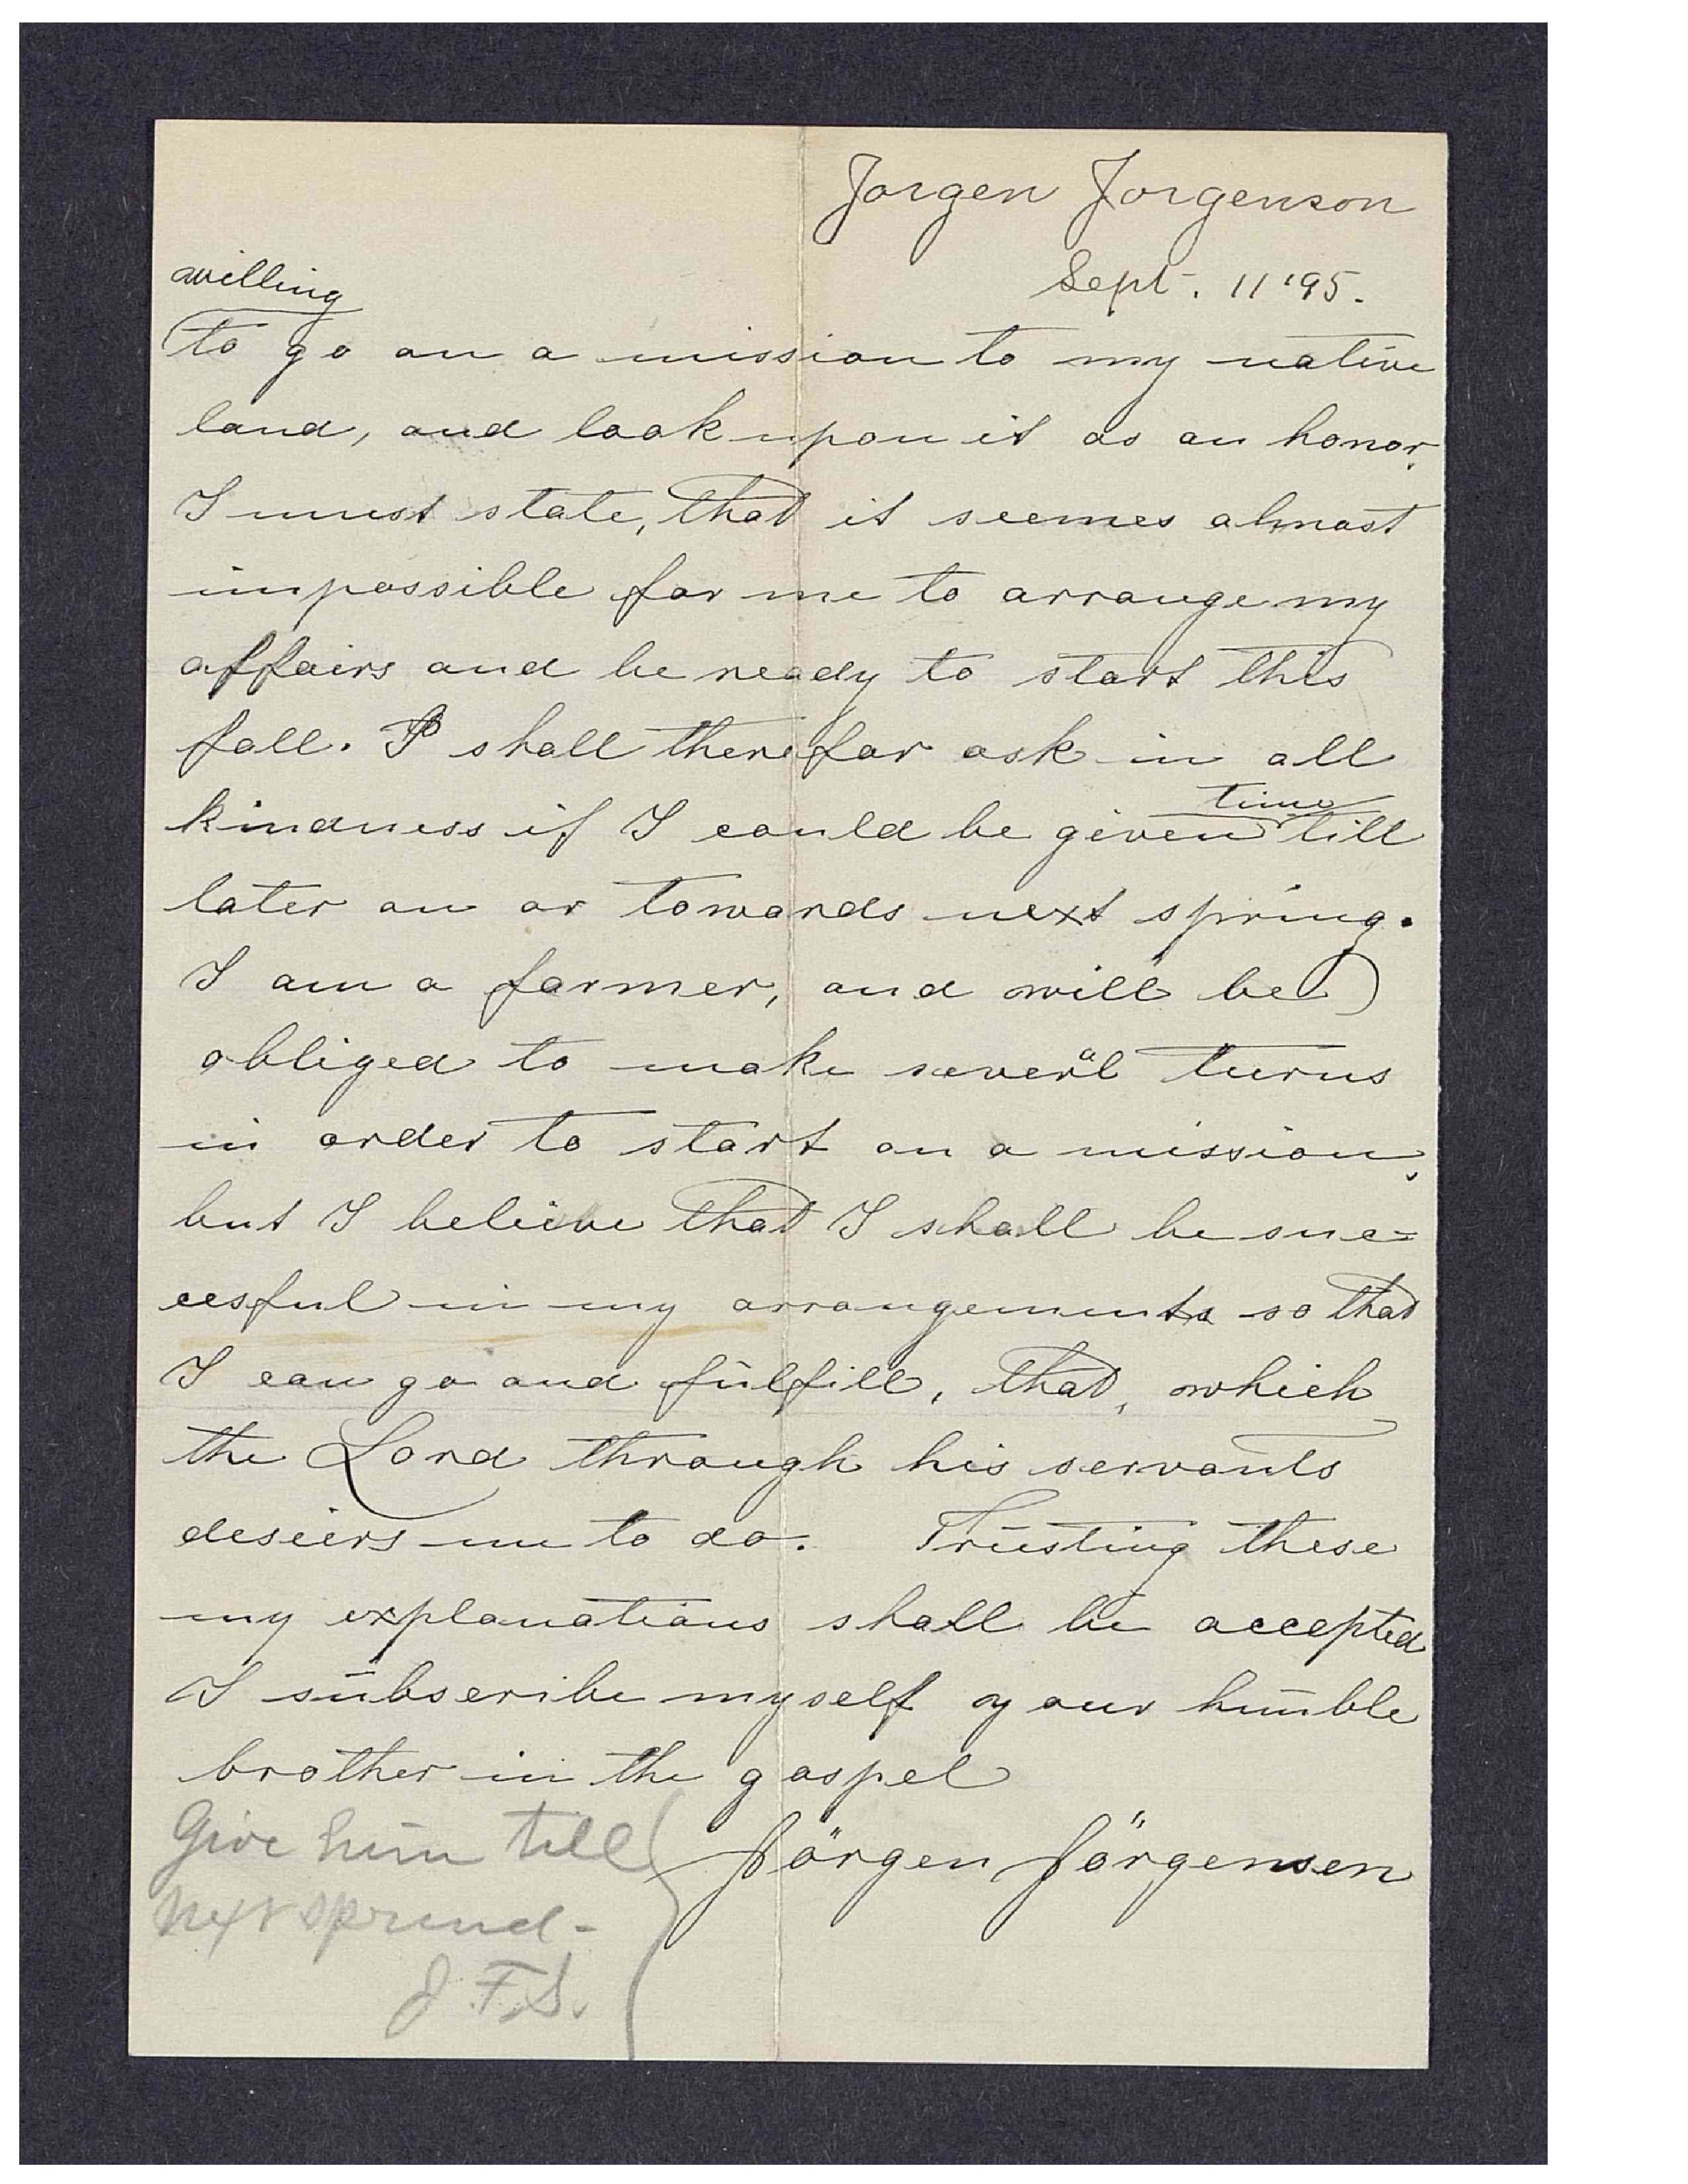 Jorgen Jorgenson
Sept. 11 '95.
willing
to go on a mission to my native
land, and look upon it as an honor.
I must state, that it seemes almost
impossible for me to arrange my
affairs and be ready to start this
fall. I shall therefor ask in all
kindness if I could be given time till
later on or towards next spring.
I am a farmer, and will be
obliged to make several turns
in order to start on a mission,
but I believe that I shall be suc=
cesful in my arrangements so that
I can go and fulfill, that, which
the Lord through his servants
deseirs me to do. Trusting these
my explanations shall be accepted
I subscribe myself your humble
brother in the gospel
Jörgen Jörgensen
Give him till
next
J. F. S.